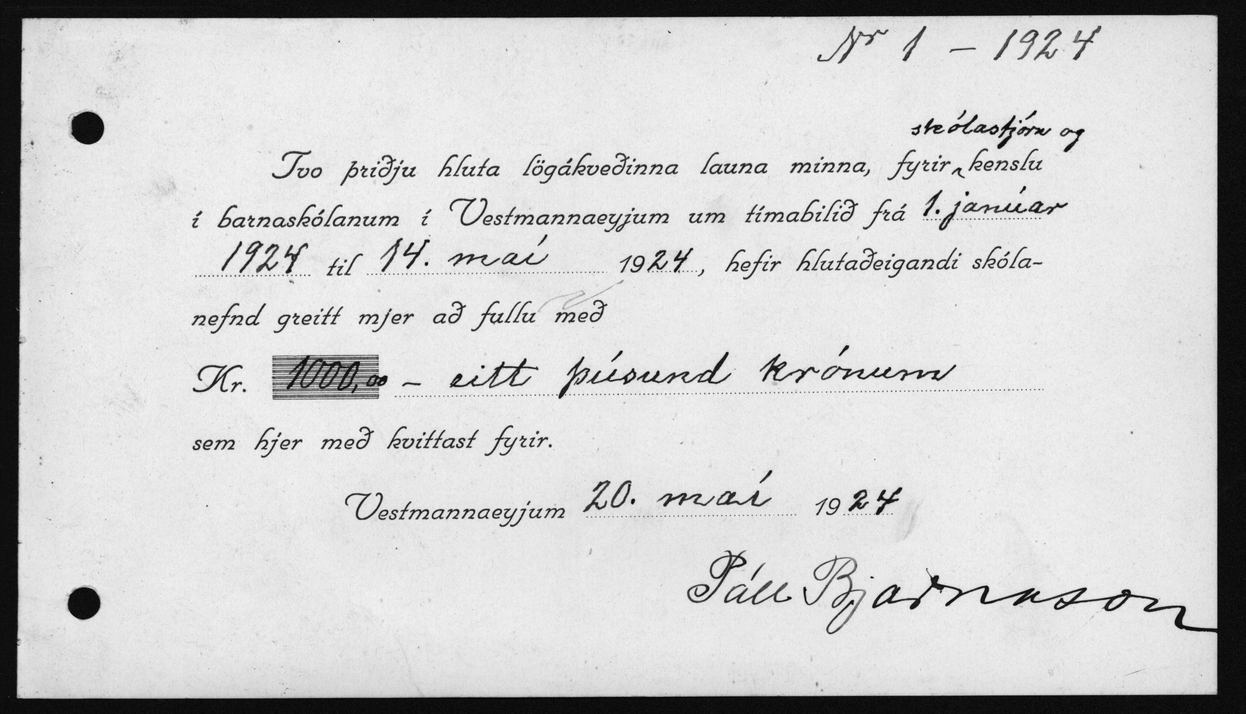 Nr 1 – 1924
skólastjórn og
Tvo þriðju hluta lögákveðinna launa minna, fyrir ‸ kenslu
í barnaskólanum í Vestmannaeyjum um tímabilið frá 1. janúar
1924 til 14. maí 1924, hefir hlutaðeigandi skóla-
nefnd greitt mjer að fullu með
Kr. 1000,00 – eitt þúsund krónum
sem hjer með kvittast fyrir.
Vestmannaeyjum 20. maí 1924
Páll Bjarnason